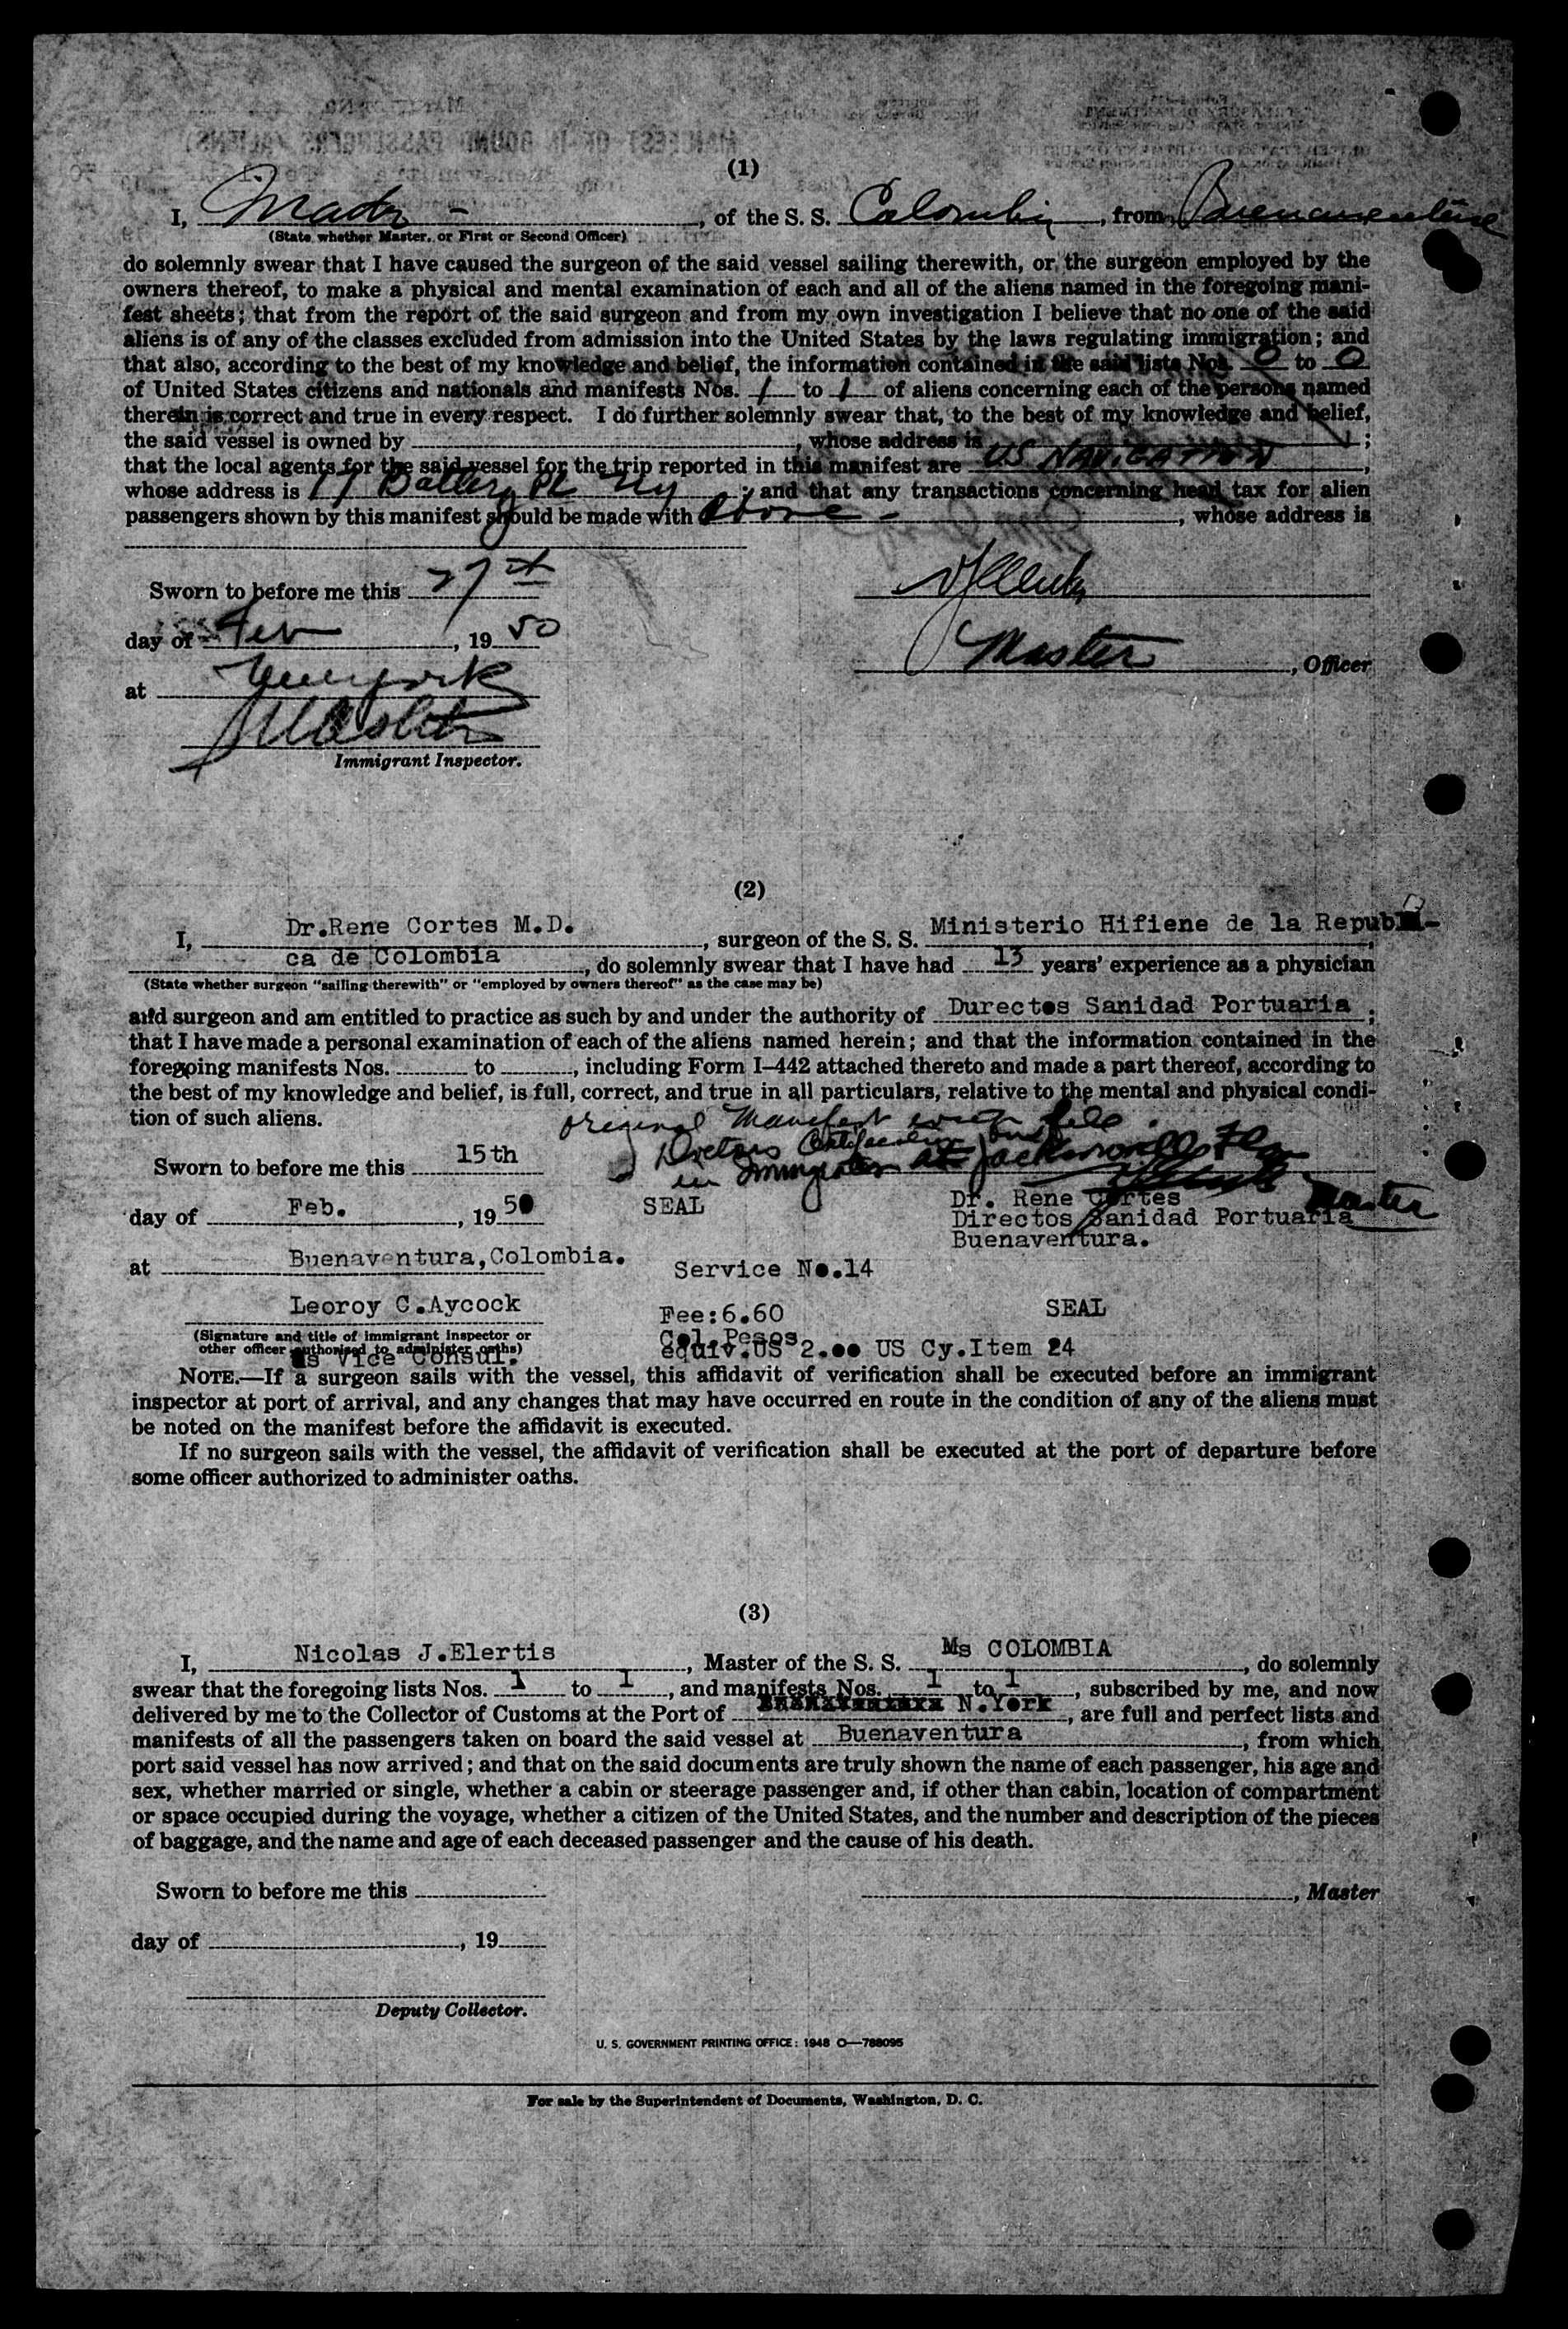 (1)
I, Master - , of the S. S. Colombia, from Buenaventura
(State whether Master, or First or Second Officer)
do solemnly swear that I have caused the surgeon of the said vessel sailing therewith, or the surgeon employed by the
owners thereof, to make a physical and mental examination of each and all of the aliens named in the foregoing mani-
fest sheets; that from the report of the said surgeon and from my own investigation I believe that no one of the said
aliens is of any of the classes excluded from admission into the United States by the laws regulating immigration; and
that also, according to the best of my knowledge and belief, the information contained in the said lists Nos. 0 to 0
of United States citizens and nationals and manifests Nos. 1 to 1 of aliens concerning each of the persons named
therein is correct and true in every respect. I do further solemnly swear that, to the best of my knowledge and belief,
the said vessel is owned by , whose address is ;
that the local agents for the said vessel for the trip reported in this manifest are US NAVIGATION,
whose address is 17 Battery Pl NY ; and that any transactions concerning head tax for alien
passengers shown by this manifest should be made with above - , whose address is
Sworn to before me this 27th
day of Feb, 19 50
Master, Officer
at New York
Immigrant Inspector.
(2)
I, Dr.Rene Cortes M.D. , surgeon of the S. S. Ministerio Hifiene de la Republi-
ca de Colombia, do solemnly swear that I have had 13 years' experience as a physician
(State whether surgeon "sailing therewith" or "employed by owners thereof" as the case may be)
and surgeon and am entitled to practice as such by and under the authority of Durectos Sanidad Portuaria ;
that I have made a personal examination of each of the aliens named herein; and that the information contained in the
foregoing manifests Nos. to , including Form I-442 attached thereto and made a part thereof, according to
the best of my knowledge and belief, is full, correct, and true in all particulars, relative to the mental and physical condi-
tion of such aliens.
original Manifest
Doctors Certificate
in Immigration at Jacksonville Fla
Master
Sworn to before me this 15th
day of Feb. , 19 50
SEAL
Dr. Rene Cortes
Directos Sanidad Portuaria
Buenaventura.
at Buenaventura,Colombia.
Service No.14
Leoroy C.Aycock
Fee:6.60
SEAL
(Signature and title of immigrant inspector or
other officer authorized to administer oaths)
Us Vice Consul.
Col.Pesos
equiv.US 2.00 US Cy.Item 24
NOTE.—If a surgeon sails with the vessel, this affidavit of verification shall be executed before an immigrant
inspector at port of arrival, and any changes that may have occurred en route in the condition of any of the aliens must
be noted on the manifest before the affidavit is executed.
If no surgeon sails with the vessel, the affidavit of verification shall be executed at the port of departure before
some officer authorized to administer oaths.
(3)
I, Nicolas J.Elertis , Master of the S. S. Ms COLOMBIA , do solemnly
swear that the foregoing lists Nos. 1 to 1 , and manifests Nos. 1 to 1 , subscribed by me, and now
delivered by me to the Collector of Customs at the Port of N.York , are full and perfect lists and
manifests of all the passengers taken on board the said vessel at Buenaventura , from which
port said vessel has now arrived; and that on the said documents are truly shown the name of each passenger, his age and
sex, whether married or single, whether a cabin or steerage passenger and, if other than cabin, location of compartment
or space occupied during the voyage, whether a citizen of the United States, and the number and description of the pieces
of baggage, and the name and age of each deceased passenger and the cause of his death.
Sworn to before me this
, Master
day of , 19
Deputy Collector.
U. S. GOVERNMENT PRINTING OFFICE: 1948 O—788095
For sale by the Superintendent of Documents, Washington, D. C.